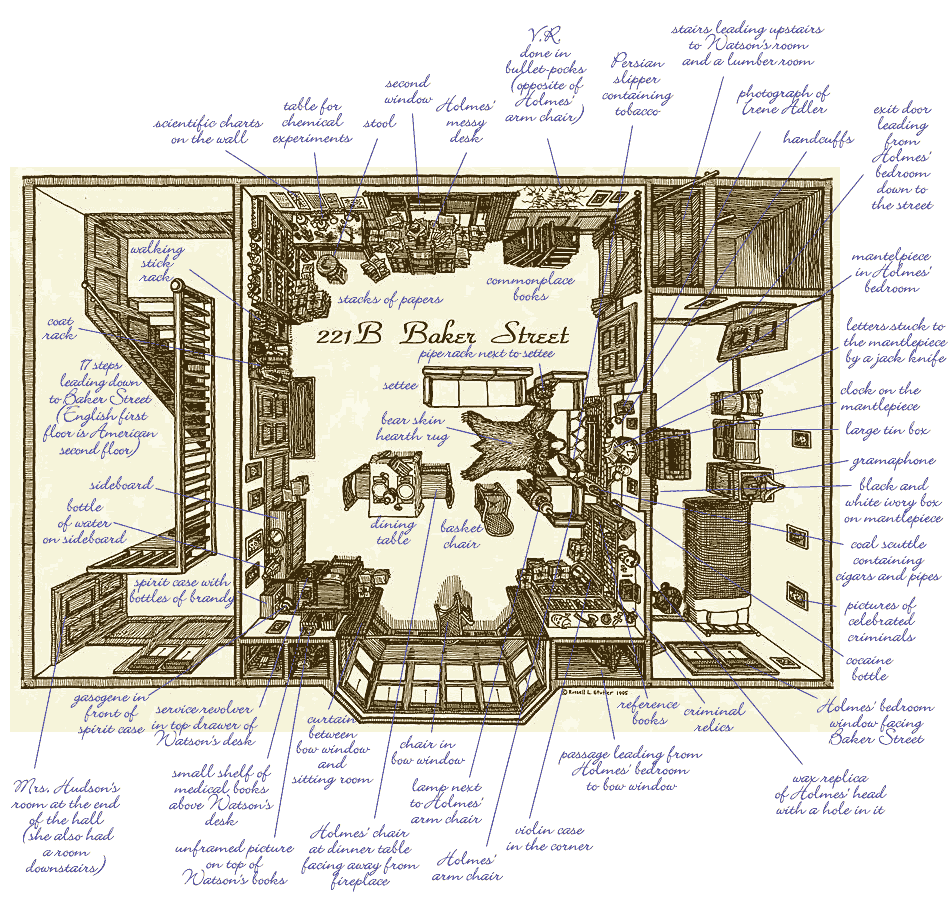 V.R.
done in
bullet-pocks
(opposite of
Holmes'
arm chair)
stairs leading upstairs
to Watson's room
and a lumber room
Persian
slipper
containing
tobacco
second
window
Holmes'
messy
desk
photograph of
Irene Adler
exit door
leading
from
Holmes'
bedroom
down to
the street
table for
chemical
experiments
stool
scientific charts
on the wall
handcuffs
walking
stick
rack
stacks of papers
commonplace
books
mantelpiece
in Holmes'
bedroom
coat
rack
221B Baker Street
pipe rack next to settee
letters stuck to
the mantlepiece
by a jack knife
17 steps
leading down
to Baker Street
(English first
floor is American
second floor)
settee
clock on the
mantlepiece
bear skin
hearth rug
large tin box
gramaphone
sideboard
black and
white ivory box
on mantlepiece
bottle
of water
on sideboard
dining
table
basket
chair
coal scuttle
containing
cigars and pipes
spirit case with
bottles of brandy
pictures of
celebrated
criminals
cocaine
bottle
© Russell L. Stutler 1995
gasogene in
front of
spirit case
service revolver
in top drawer of
Watson's desk
curtain
between
bow window
and
sitting room
chair in
bow window
reference
books
criminal
relics
Holmes' bedroom
window facing
Baker Street
passage leading from
Holmes' bedroom
to bow window
Mrs. Hudson's
room at the end
of the hall
(she also had
a room
downstairs)
small shelf of
medical books
above Watson's
desk
lamp next
to Holmes'
arm chair
wax replica
of Holmes' head
with a hole in it
unframed picture
on top of
Watson's books
Holmes' chair
at dinner table
facing away from
fireplace
Holmes'
arm chair
violin case
in the corner